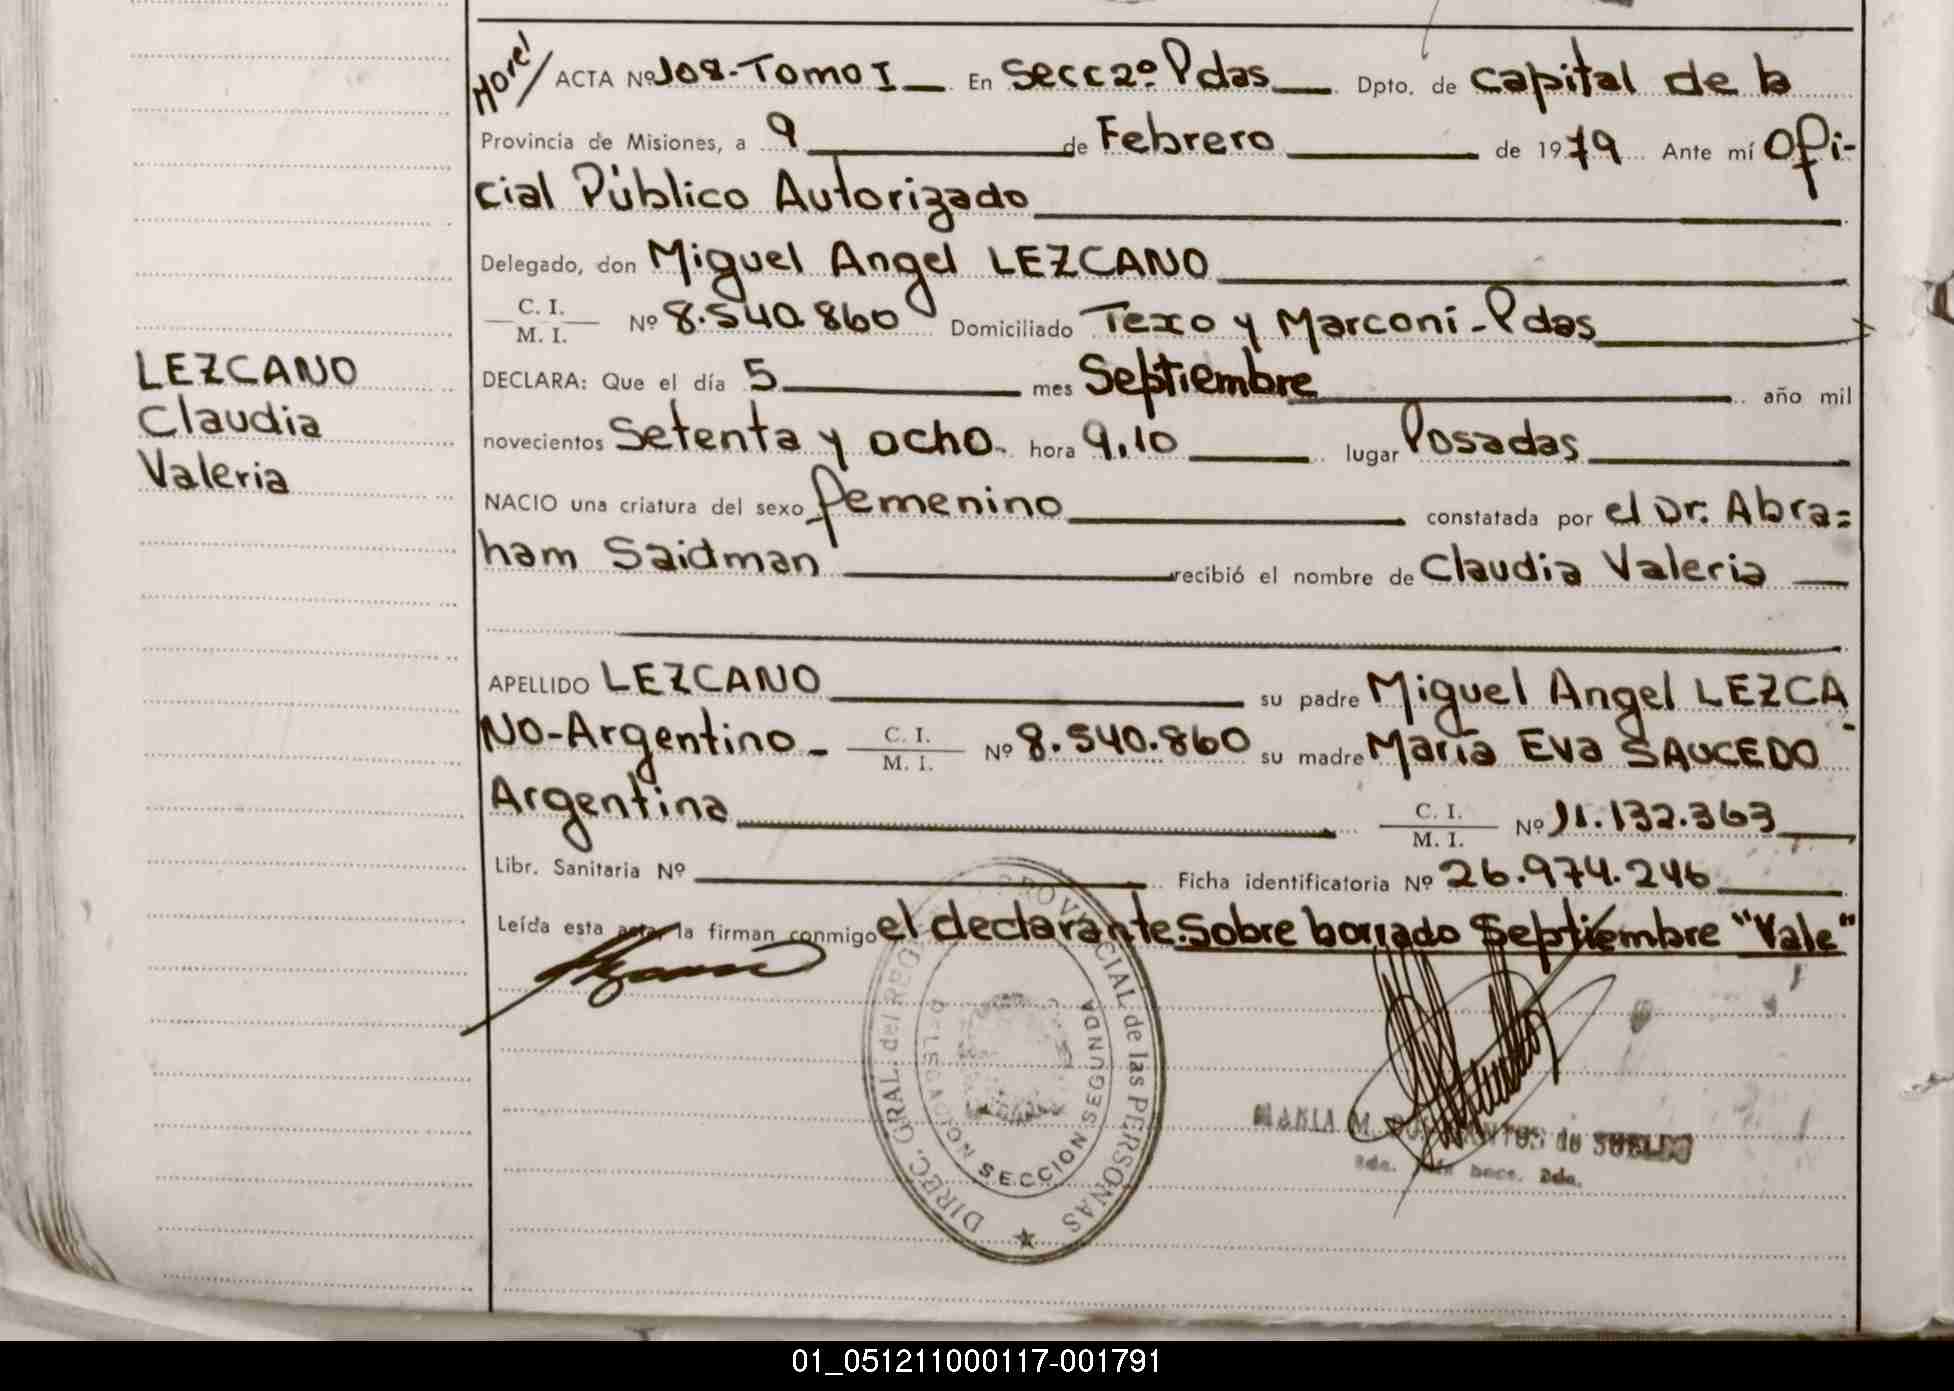 More/ ACTA Nº 108-Tomo I En Secc 2º Pdas Dpto. de Capital de la
Provincia de Misiones, a 9 de Febrero de 1979 Ante mí Ofi-
cial Público Autorizado
Delegado, don Miguel Angel LEZCANO
C. I.
M. I. Nº 8.540.860 Domiciliado Texo y Marconi-Pdas
LEZCANO
Claudia
Valeria
DECLARA: Que el día 5 mes Septiembre año mil
novecientos Setenta y ocho. hora 9.10 lugar Posadas
NACIO una criatura del sexo femenino constatada por el Dr. Abra=
ham Saidman recibió el nombre de Claudia Valeria
APELLIDO LEZCANO su padre Miguel Angel LEZCA
NO-Argentino- C. I. M. I. Nº 8.540.860 su madre María Eva SAUCEDO-
Argentina C. I. M. I. Nº 11.132.363
Libr. Sanitaria Nº Ficha identificatoria Nº 26.974.246
Leída esta acta, la firman conmigo el declarante. Sobre borrado Septiembre "Vale"
DIREC. GRAL. del REG. PROVINCIAL de las PERSONAS
DELEGACION SECCION SEGUNDA
MARIA M. de SUELDO
01_051211000117-001791